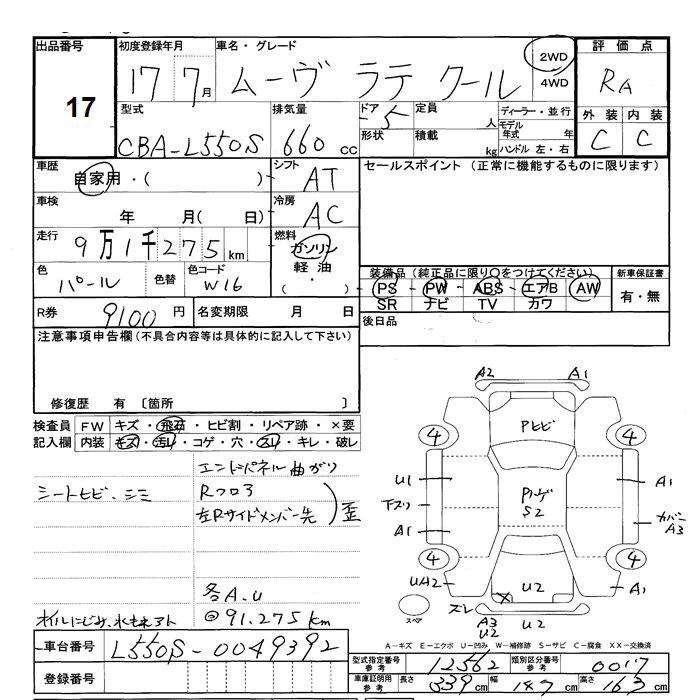 出品番号 初度登録年月 車名・グレード 評価点
17 17 7月 ムーヴ ラテ クール 2WD 4WD RA
型式 排気量 ドア 定員 ディーラー・並行 外装 内装
CBA-L550S 660 cc 5 人 モデル年式 年 C C
形状 積載 kg ハンドル 左・右
車歴 自家用・( ) シフト AT セールスポイント (正常に機能するものに限ります)
車検 年 月( 日) 冷房 AC
走行 9万1千275km 燃料 ガソリン
軽油・( )
色 パール 色替 色コード W16
装備品 (純正品に限り○をつけてください) 新車保証書
PS・PW・ABS・エアB・AW 有・無
SR ナビ TV カワ
R券 9100円 名変期限 月 日 後日品
注意事項申告欄(不具合内容等は具体的に記入して下さい)
修復歴 有 〔箇所 〕
検査員 FW キズ・飛石・ヒビ割・リペア跡・×要
記入欄 内装 キズ・汚レ・コゲ・穴・スレ・キレ・破レ
エンドパネル曲がり
シートヒビ、シミ Rフロア
左Rサイドメンバー先 歪
各A.U
オイルにじみ、水もれアト @91.275km
A2 A1
4 Pヒビ 4
U1 Pハゲ A1
下スリ S2 カバー
A1 A3
4 4
UA2 × U2 A1
スペア ズレ A3 U2 U2
A-キズ E-エクボ U-凹み W-補修跡 S-サビ C-腐食 XX-交換済
車台番号 L550S-0049392
型式指定番号 参考 12562 類別区分番号 参考 0017
登録番号 車庫証明用 参考 長さ 339cm 幅 147cm 高さ 163cm